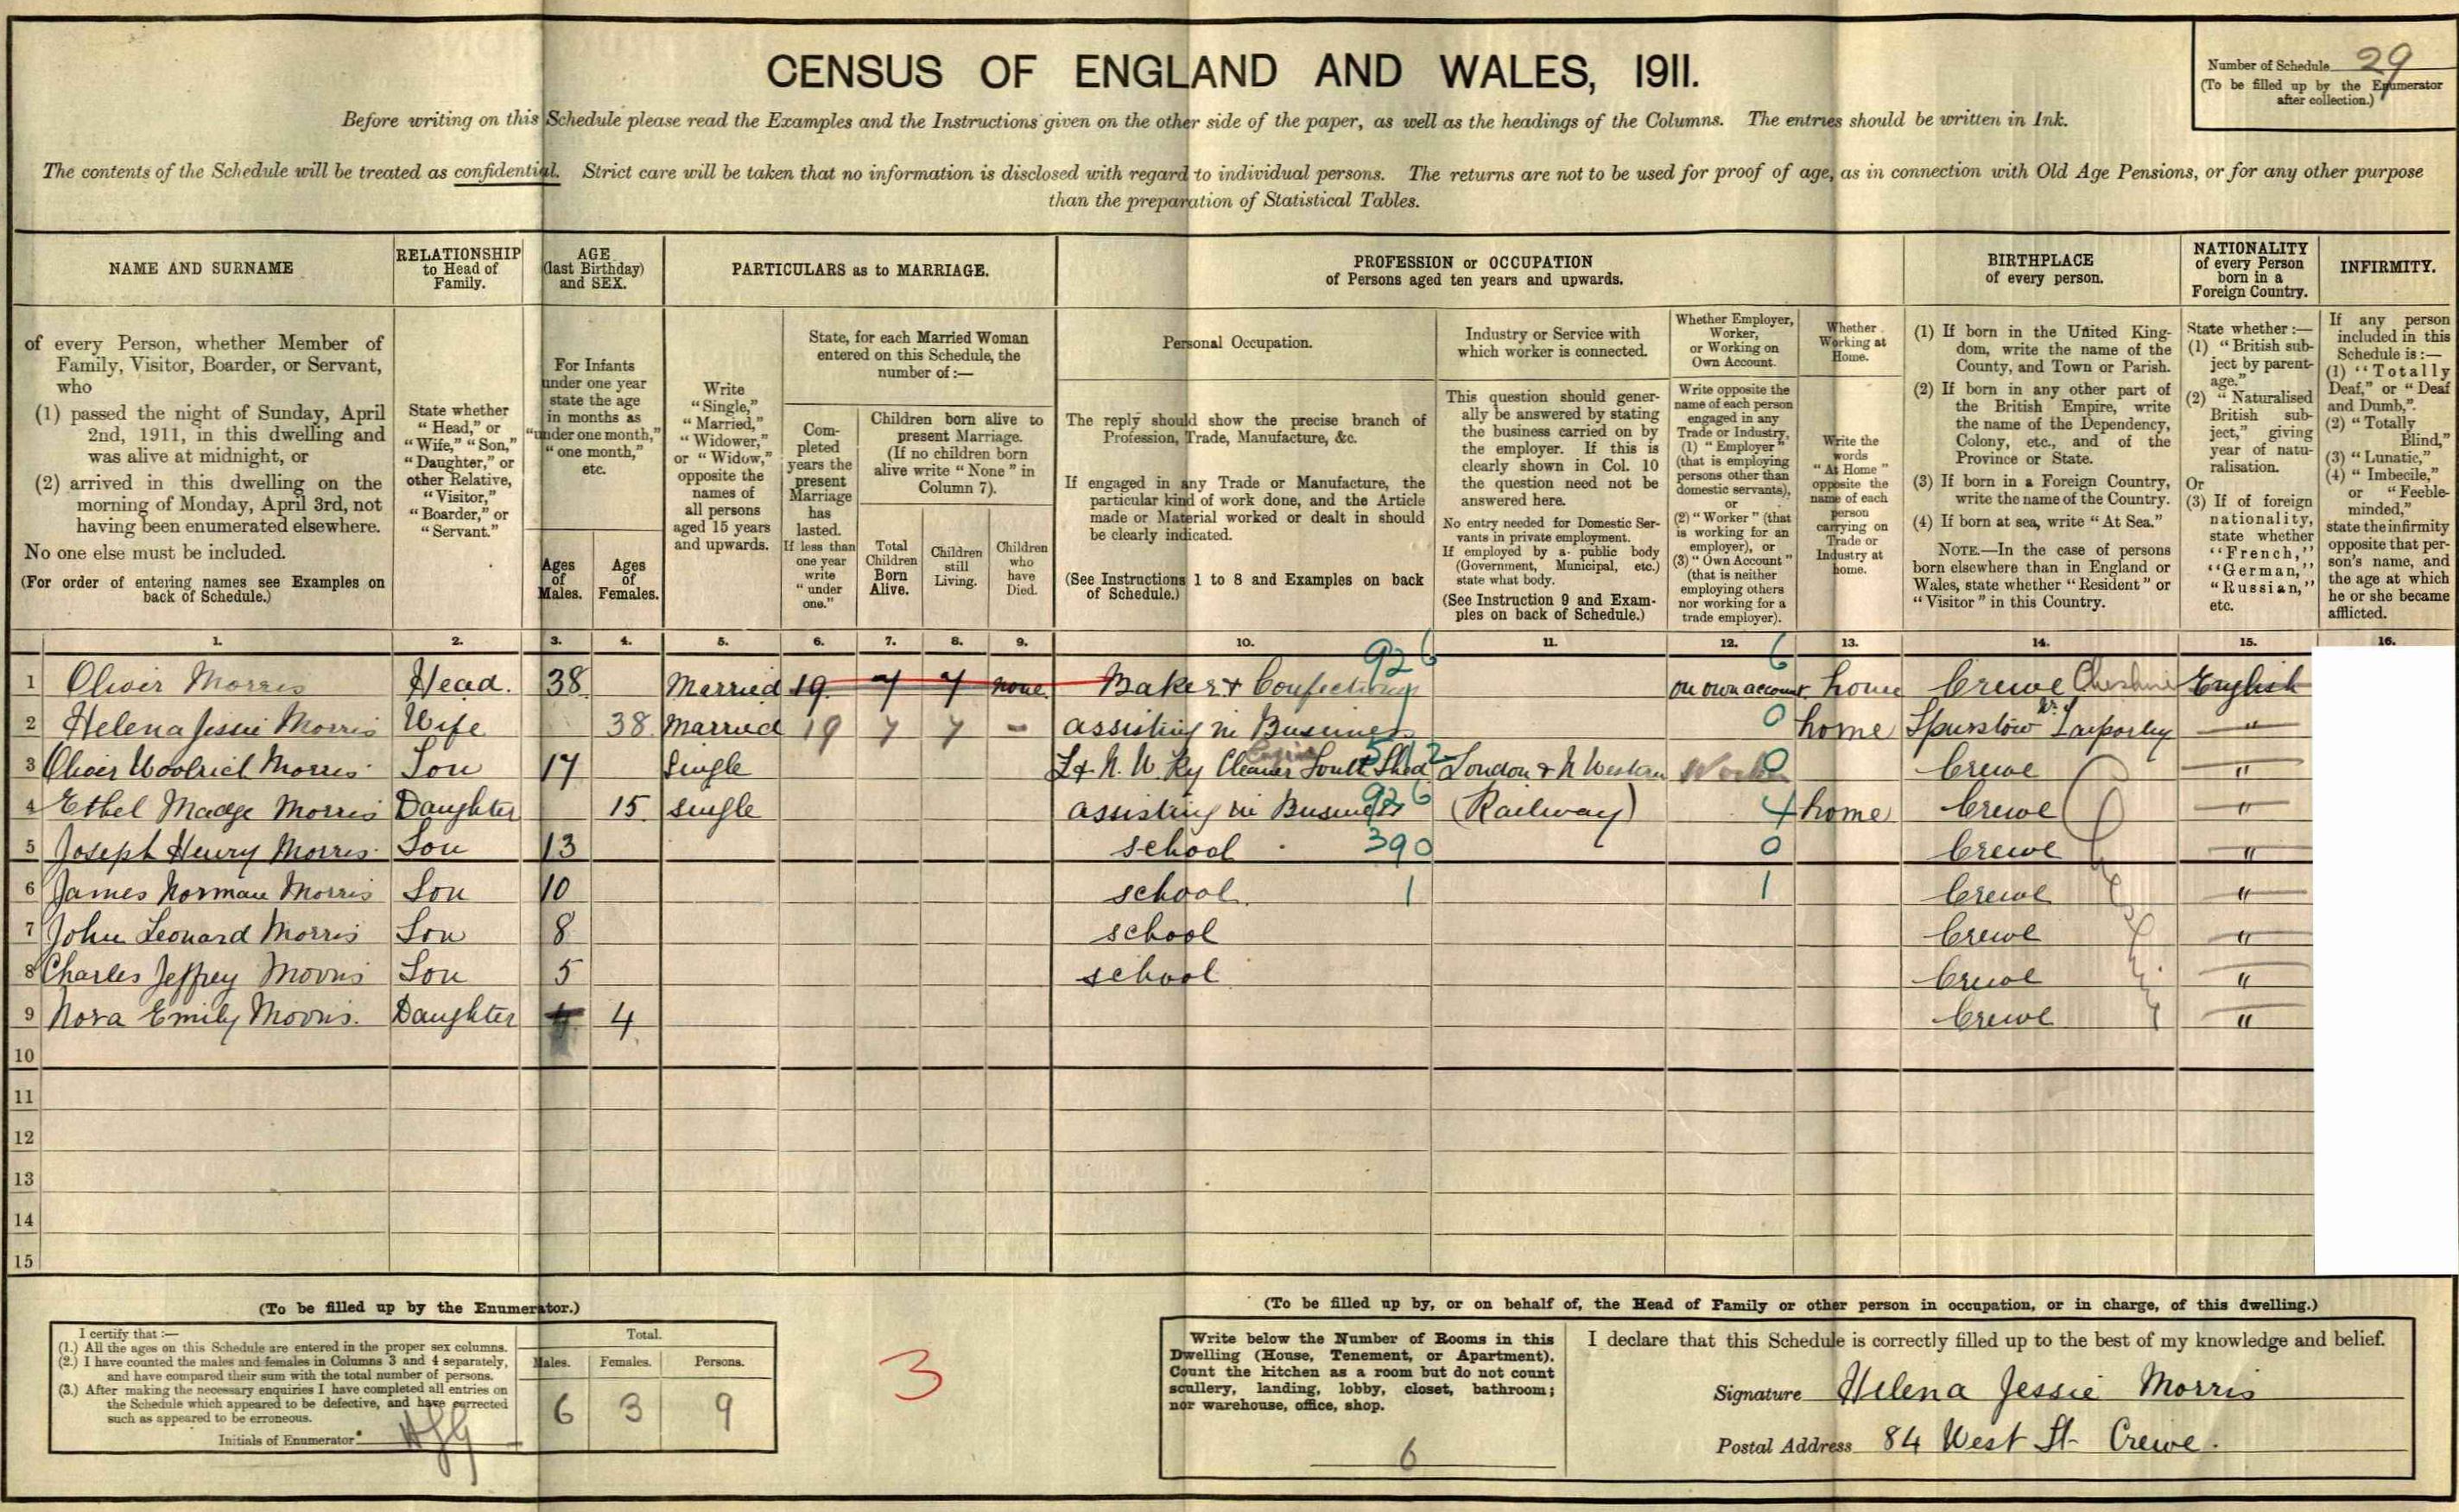 CENSUS OF ENGLAND AND WALES, 1911.
Number of Schedule 29
(To be filled up by the Enumerator
after collection.)
Before writing on this Schedule please read the Examples and the Instructions given on the other side of the paper, as well as the headings of the Columns. The entries should be written in Ink.
The contents of the Schedule will be treated as confidential. Strict care will be taken that no information is disclosed with regard to individual persons. The returns are not to be used for proof of age, as in connection with Old Age Pensions, or for any other purpose
than the preparation of Statistical Tables.
NAME AND SURNAME
of every Person, whether Member of
Family, Visitor, Boarder, or Servant,
who
(1) passed the night of Sunday, April
2nd, 1911, in this dwelling and
was alive at midnight, or
(2) arrived in this dwelling on the
morning of Monday, April 3rd, not
having been enumerated elsewhere.
No one else must be included.
(For order of entering names see Examples on
back of Schedule.)
RELATIONSHIP
to Head of
Family.
State whether
"Head," or
"Wife," "Son,"
"Daughter," or
other Relative,
"Visitor,"
"Boarder," or
"Servant."
AGE
(last Birthday)
and SEX.
For Infants
under one year
state the age
in months as
"under one month,"
"one month,"
etc.
Ages
of
Males.
Ages
of
Females.
PARTICULARS as to MARRIAGE.
Write
"Single,"
"Married,"
"Widower,"
or "Widow,"
opposite the
names of
all persons
aged 15 years
and upwards.
State, for each Married Woman
entered on this Schedule, the
number of:—
Com-
pleted
years the
present
Marriage
has
lasted.
If less than
one year
write
"under
one."
Children born alive to
present Marriage.
(If no children born
alive write "None" in
Column 7).
Total
Children
Born
Alive.
Children
still
Living.
Children
who
have
Died.
PROFESSION or OCCUPATION
of Persons aged ten years and upwards.
Personal Occupation.
The reply should show the precise branch of
Profession, Trade, Manufacture, &c.
If engaged in any Trade or Manufacture, the
particular kind of work done, and the Article
made or Material worked or dealt in should
be clearly indicated.
(See Instructions 1 to 8 and Examples on back
of Schedule.)
Industry or Service with
which worker is connected.
This question should gener-
ally be answered by stating
the business carried on by
the employer. If this is
clearly shown in Col. 10
the question need not be
answered here.
No entry needed for Domestic Ser-
vants in private employment.
If employed by a public body
(Government, Municipal, etc.)
state what body.
(See Instruction 9 and Exam-
ples on back of Schedule.)
Whether Employer,
Worker,
or Working on
Own Account.
Write opposite the
name of each person
engaged in any
Trade or Industry,
(1) "Employer"
(that is employing
persons other than
domestic servants),
or
(2) "Worker" (that
is working for an
employer), or
(3) "Own Account"
(that is neither
employing others
nor working for a
trade employer).
Whether
Working at
Home.
Write the
words
"At Home"
opposite the
name of each
person
carrying on
Trade or
Industry at
home.
BIRTHPLACE
of every person.
(1) If born in the United King-
dom, write the name of the
County, and Town or Parish.
(2) If born in any other part of
the British Empire, write
the name of the Dependency,
Colony, etc., and of the
Province or State.
(3) If born in a Foreign Country,
write the name of the Country.
(4) If born at sea, write "At Sea."
NOTE.—In the case of persons
born elsewhere than in England or
Wales, state whether "Resident" or
"Visitor" in this Country.
NATIONALITY
of every Person
born in a
Foreign Country.
State whether:—
(1) "British sub-
ject by parent-
age."
(2) "Naturalised
British sub-
ject," giving
year of natu-
ralisation.
Or
(3) If of foreign
nationality,
state whether
"French,"
"German,"
"Russian,"
etc.
INFIRMITY.
If any person
included in this
Schedule is:—
(1) "Totally
Deaf," or "Deaf
and Dumb,"
(2) "Totally
Blind,"
(3) "Lunatic,"
(4) "Imbecile,"
or "Feeble-
minded,"
state the infirmity
opposite that per-
son's name, and
the age at which
he or she became
afflicted.
1. 2. 3. 4. 5. 6. 7. 8. 9. 10. 11. 12. 13. 14. 15. 16.
926 6
1 Oliver Morris Head. 38 Married 19 7 7 none Baker & Confectioner on own account home Crewe Cheshire English
2 Helena Jessie Morris Wife 38 Married 19 7 7 - assisting in Business 0 home Spurstow Nr Tarporley "
3 Oliver Woolrich Morris Son 17 Single L & N. W. Ry Engine Cleaner South Shed London & N Western Worker Crewe "
4 Ethel Madge Morris Daughter 15 single assisting in Business 926 (Railway) 4 home Crewe "
5 Joseph Henry Morris Son 13 school 390 0 Crewe "
6 James Norman Morris Son 10 school 1 1 Crewe "
7 John Leonard Morris Son 8 school Crewe "
8 Charles Jeffrey Morris Son 5 school Crewe "
9 Nora Emily Morris. Daughter 4 Crewe "
10
11
12
13
14
15
(To be filled up by the Enumerator.)
I certify that:—
(1.) All the ages on this Schedule are entered in the proper sex columns.
(2.) I have counted the males and females in Columns 3 and 4 separately,
and have compared their sum with the total number of persons.
(3.) After making the necessary enquiries I have completed all entries on
the Schedule which appeared to be defective, and have corrected
such as appeared to be erroneous.
Initials of Enumerator
Total.
Males. Females. Persons.
6 3 9
3
(To be filled up by, or on behalf of, the Head of Family or other person in occupation, or in charge, of this dwelling.)
Write below the Number of Rooms in this
Dwelling (House, Tenement, or Apartment).
Count the kitchen as a room but do not count
scullery, landing, lobby, closet, bathroom;
nor warehouse, office, shop.
6
I declare that this Schedule is correctly filled up to the best of my knowledge and belief.
Signature Helena Jessie Morris
Postal Address 84 West St- Crewe.